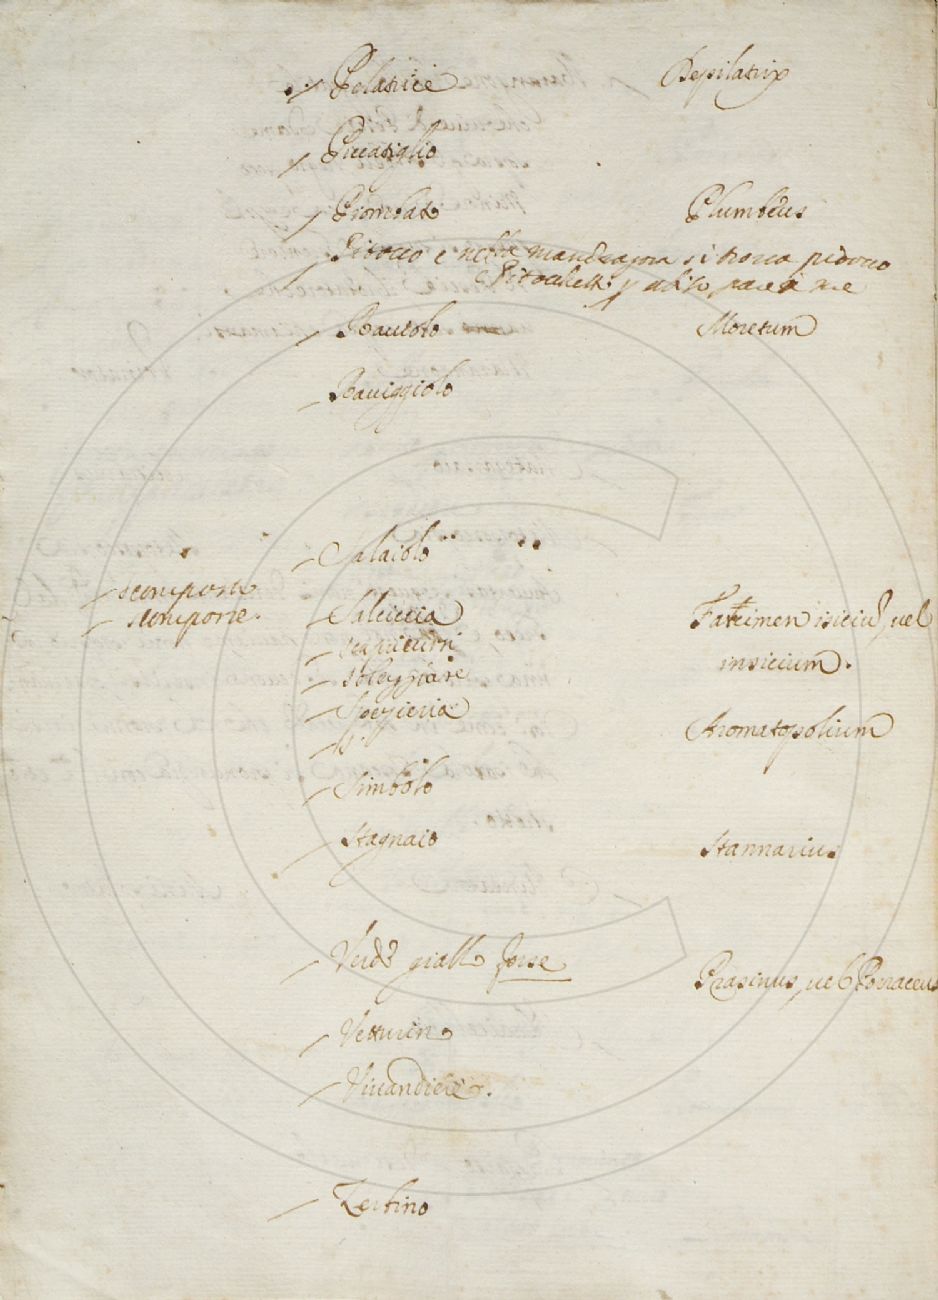 Pelatrice Depilatrix
Piccatiglio
Piombato Plumbeus
Pitocco e nella mandragora si trova pidocco
Pitocchetti
Raviolo Moretum
Raviggiolo
Salaiolo
scomporre
scomporre.
Salciccia Fartimen isiciu, vel
insicium.
scapucciri
soleggiare
Spezieria Aromatopolium
Simbolo
Stagnaio Stannarius
Verde giallo forse Prasinus, vel Porraceus
Vetturino
Vivandiere.
Zerbino